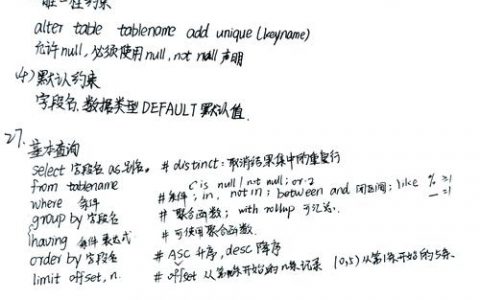 唯一性约束
alter table tablename add unique (keyname)
允许null, 必须使用null, not null 声明
4) 默认约束
字段名. 数据类型 DEFAULT 默认值.
27. 基本查询
select 字段名 as 别名. # distinct: 取消结果集中的重复行
from tablename is null / not null;
where 条件 # 条件; in, not in; between and 闭区间; like %
group by 字段名 # 聚合函数; with rollup 可汇总.
having 条件表达式 # 可使用聚合函数.
order by 字段名 # ASC 升序, desc 降序
limit offset, n. # offset 从第 条开始的n条记录 (0,5) 从第1条开始的5条.